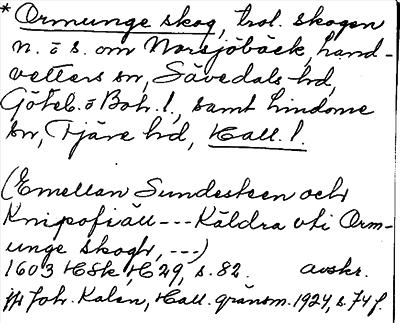 * Ormunge skog, trol. skogen
n. ö s. om Norsjöbäck, Land-
vetters sn, Sävedals hd,
Göteb. o Boh. l., samt Lindome
sn, Fjäre hd, Hall. l.
(Emellan Sundesteen och
Knipofiäll --- Käldra vti Orm-
unge skogh, ---)
1603 HSk, H29, s. 82. avskr.
jfr Joh. Kalén, Hall. gränsm. 1924, s. 74 f.